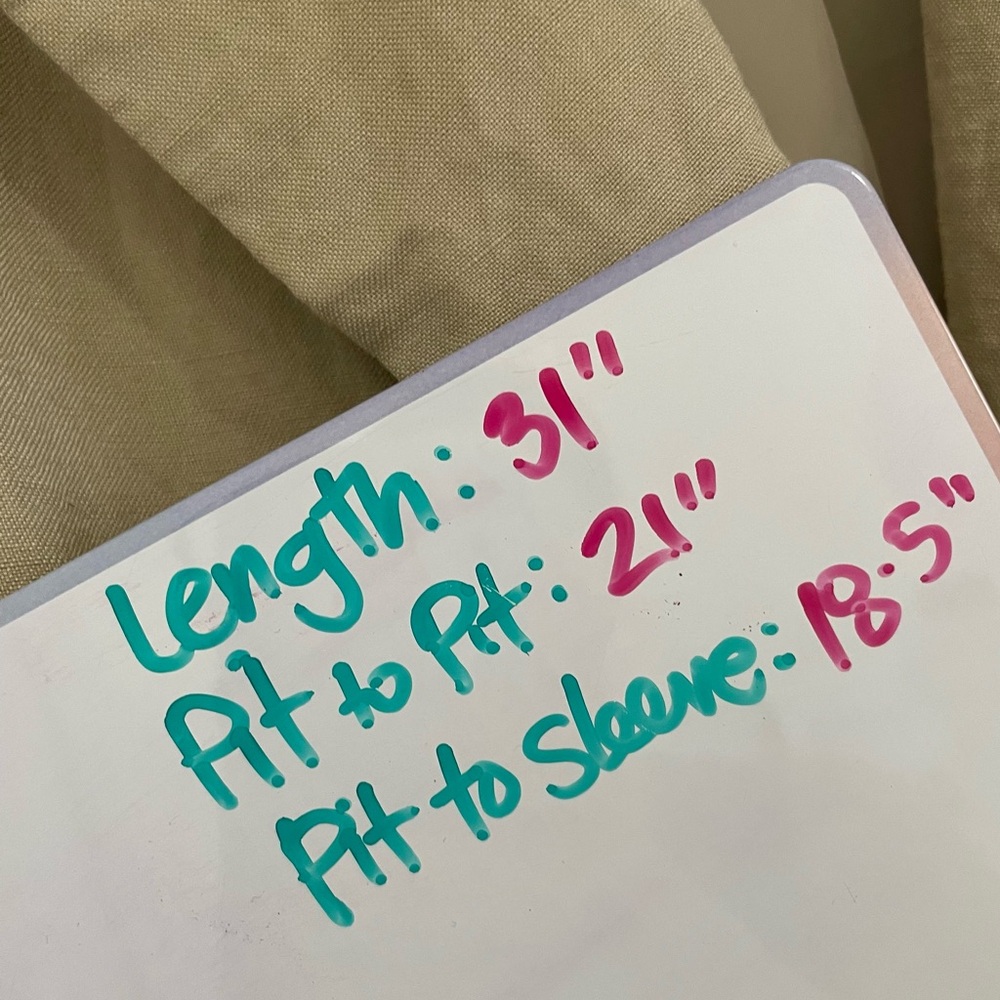 Length: 31"
Pit to Pit: 21"
Pit to Sleeve: 18.5"